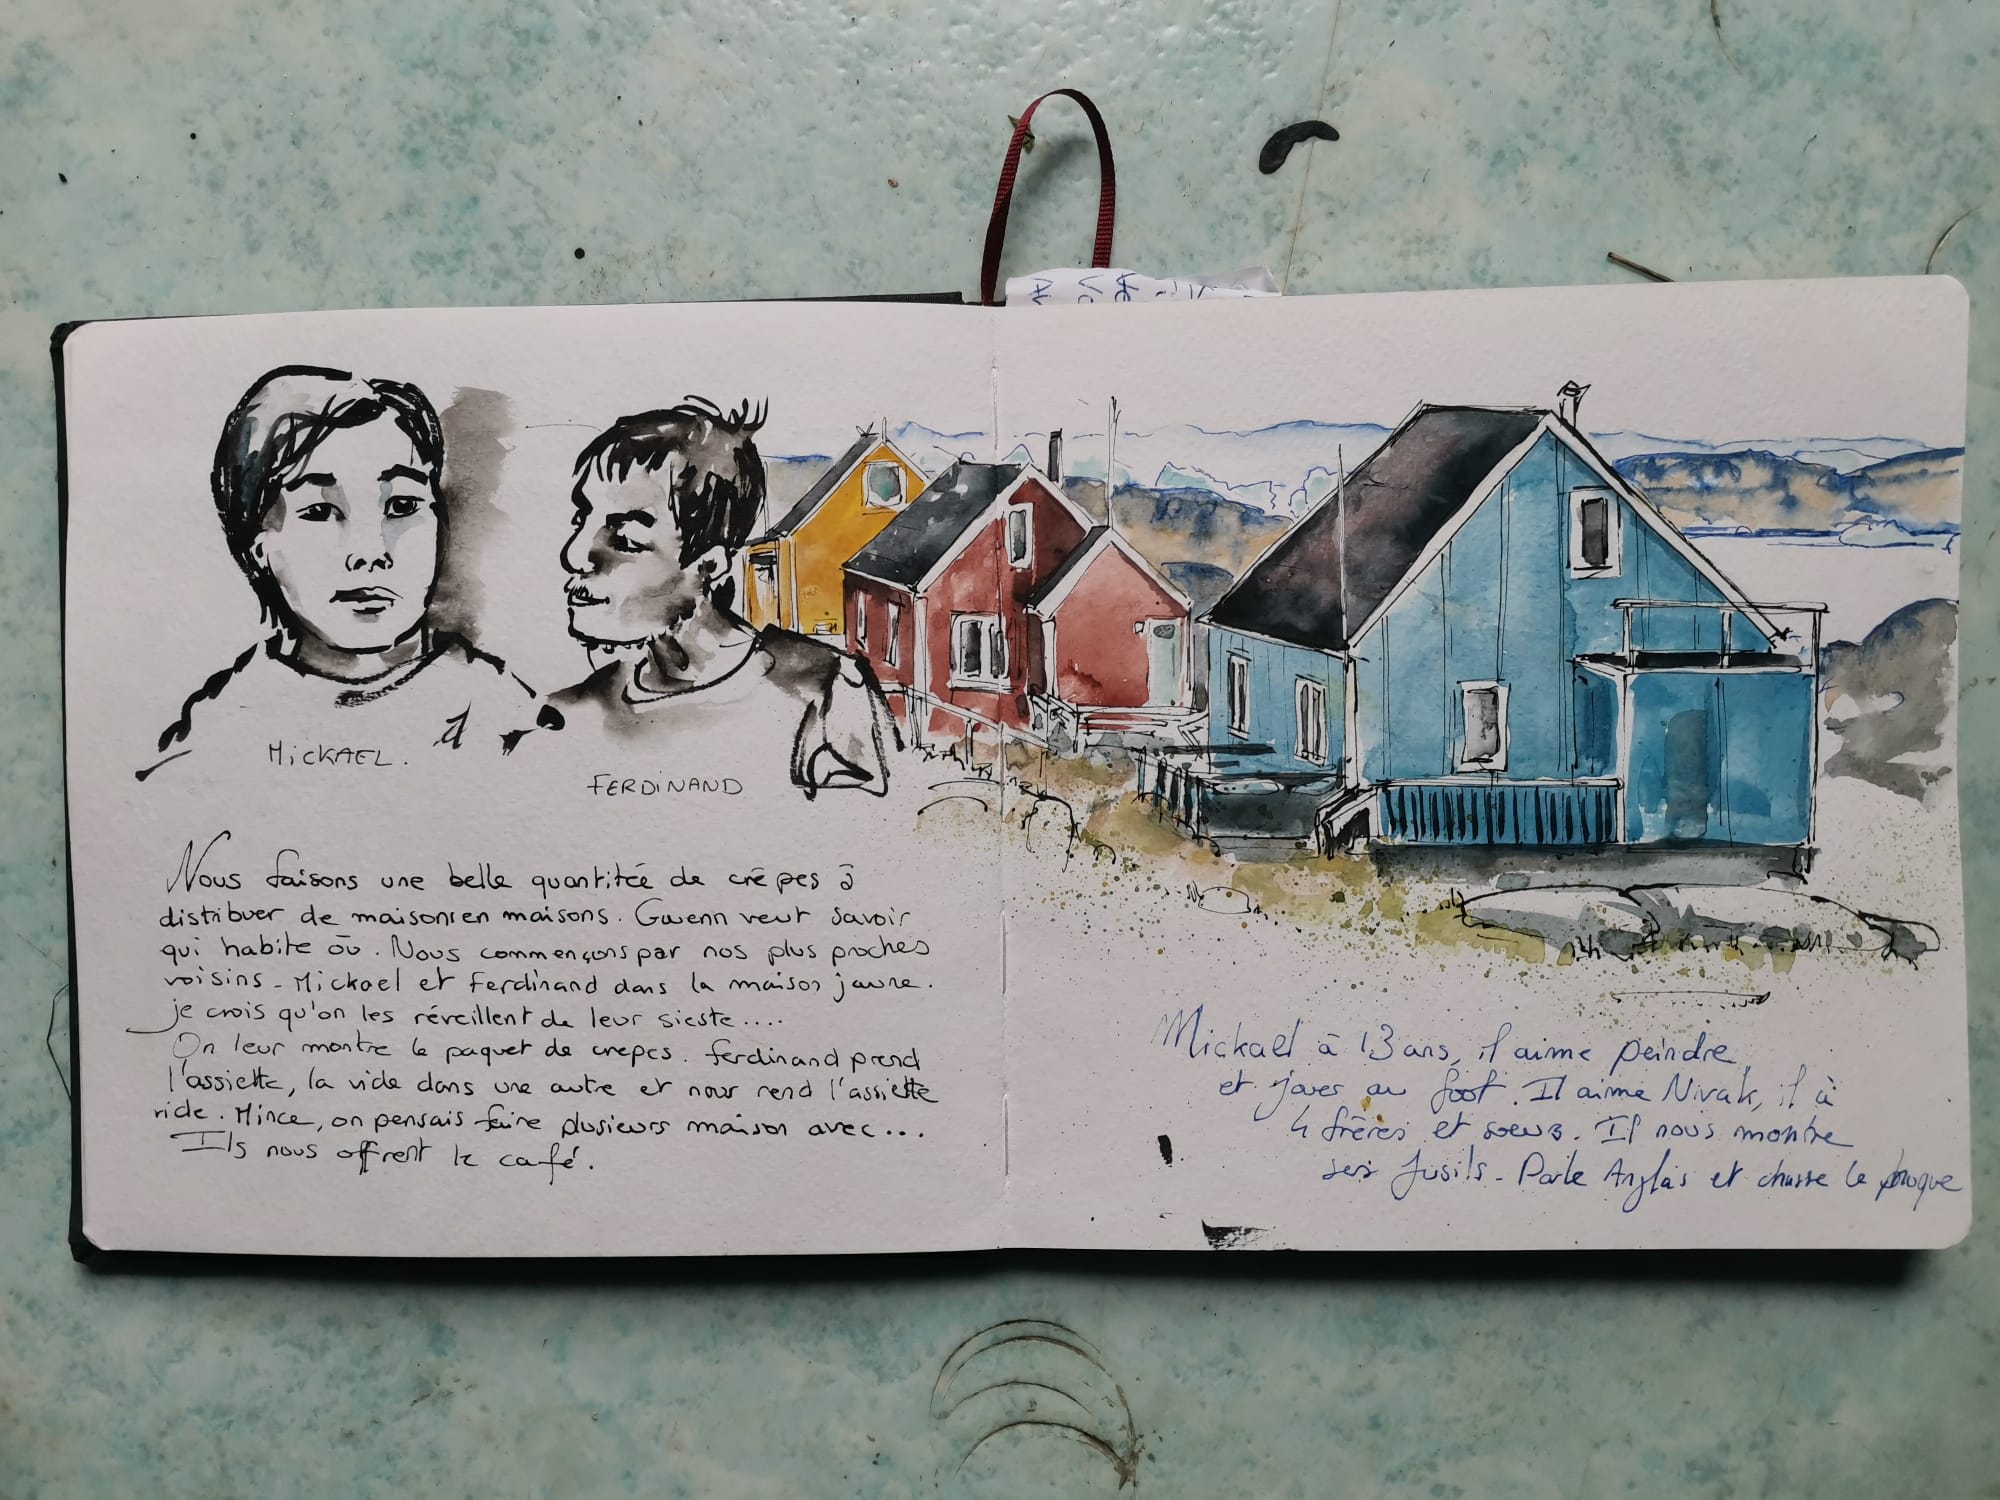 MiCKAEL.
FERDiNAND
Nous faisons une belle quantitée de crêpes à
distribuer de maisons en maisons. Gwenn veut savoir
qui habite où. Nous commençons par nos plus proches
voisins - Mickael et Ferdinand dans la maison jaune.
je crois qu'on les réveillent de leur sieste....
On leur montre le paquet de crepes. Ferdinand prend
l'assiette, la vide dans une autre et nous rend l'assiette
vide. Mince, on pensais faire plusieurs maison avec...
Ils nous offrent le café.
Mickael à 13 ans, il aime peindre
et jouer au foot. Il aime Nivak, il à
4 frères et soeurs. Il nous montre
ses fusils - Parle Anglais et chasse le phoque